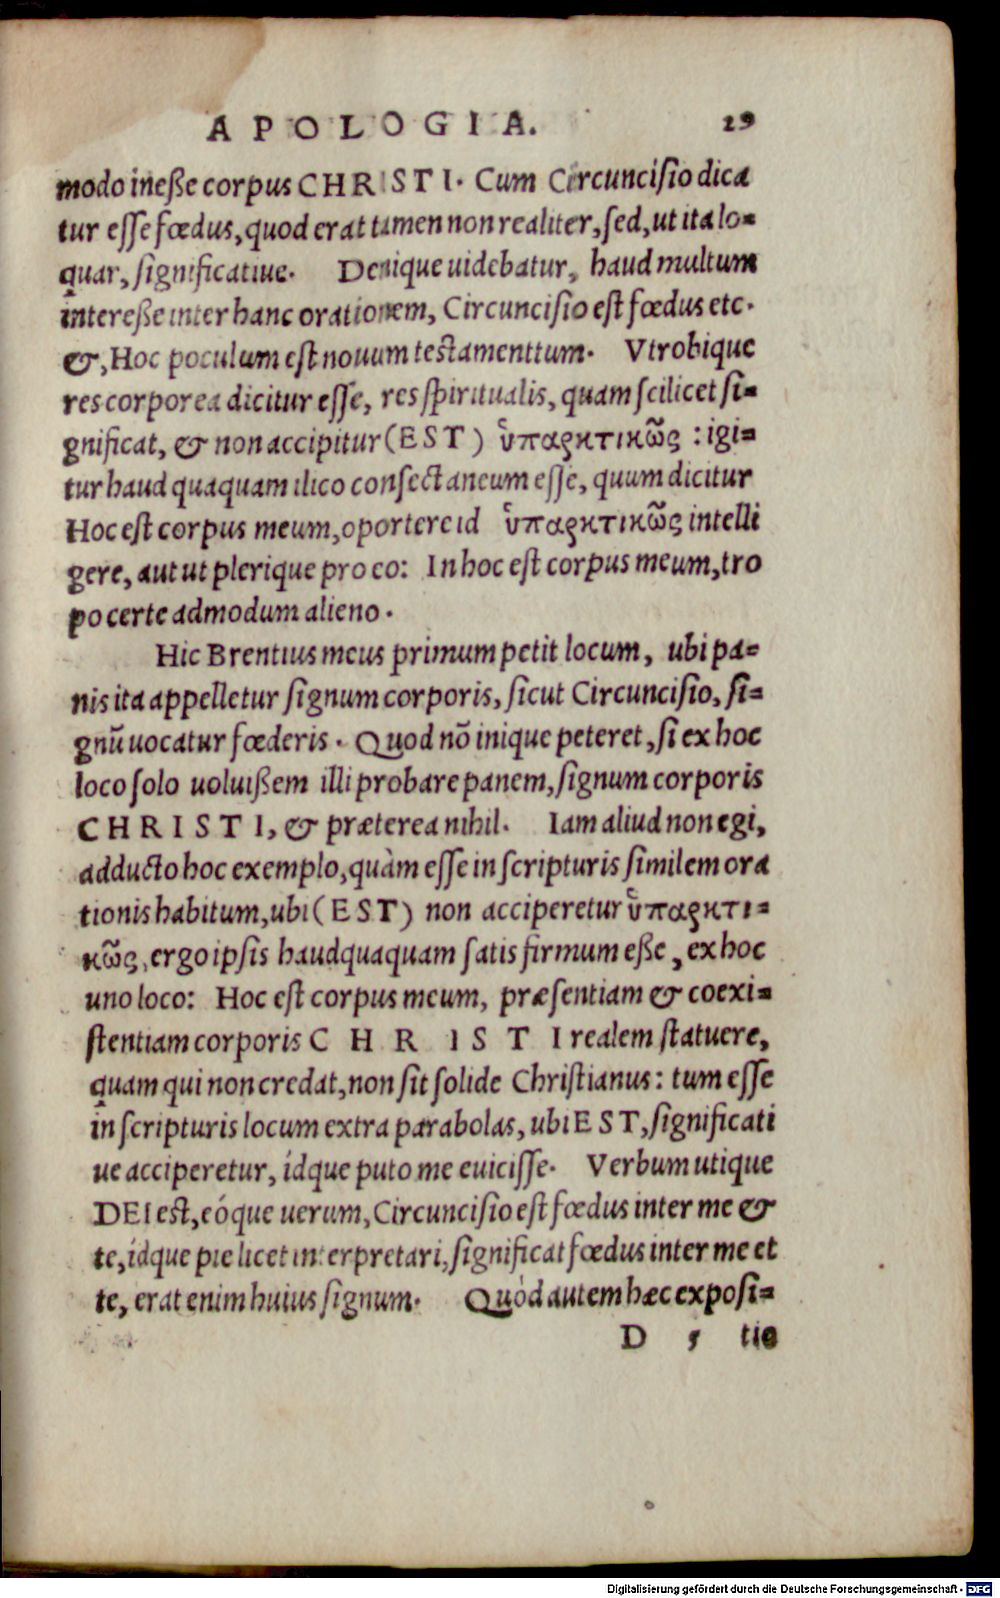 APOLOGIA. 29
modo ineße corpus CHRISTI. Cum Circuncisio dica
tur esse fœdus, quod erat tamen non realiter, sed, ut ita lo-
quar, significatiue. Denique uidebatur, haud multum
intereße inter hanc orationem, Circuncisio est fœdus etc.
&, Hoc poculum est nouum testamenttum. Vtrobique
res corporea dicitur esse, res spiritualis, quam scilicet si-
gnificat, & non accipitur (EST) ὑπαρκτικῶς : igi-
tur haud quaquam ilico consectaneum esse, quum dicitur
Hoc est corpus meum, oportere id ὑπαρκτικῶς intelli
gere, aut ut plerique pro eo: In hoc est corpus meum, tro
po certe admodum alieno.
Hic Brentius meus primum petit locum, ubi pa-
nis ita appelletur signum corporis, sicut Circuncisio, si-
gnū uocatur fœderis. Quod nō inique peteret, si ex hoc
loco solo uoluißem illi probare panem, signum corporis
CHRISTI, & præterea nihil. Iam aliud non egi,
adducto hoc exemplo, quàm esse in scripturis similem ora
tionis habitum, ubi (EST) non acciperetur ὑπαρκτι-
κῶς, ergo ipsis haudquaquam satis firmum eße, ex hoc
uno loco: Hoc est corpus meum, præsentiam & coexi-
stentiam corporis CHRISTI realem statuere,
quam qui non credat, non sit solide Christianus: tum esse
in scripturis locum extra parabolas, ubi EST, significati
ue acciperetur, idque puto me euicisse. Verbum utique
DEI est, eóque uerum, Circuncisio est fœdus inter me &
te, idque pie licet interpretari, significat fœdus inter me et
te, erat enim huius signum. Quòd autem hæc exposi-
D 5 tio
Digitalisierung gefördert durch die Deutsche Forschungsgemeinschaft - DFG